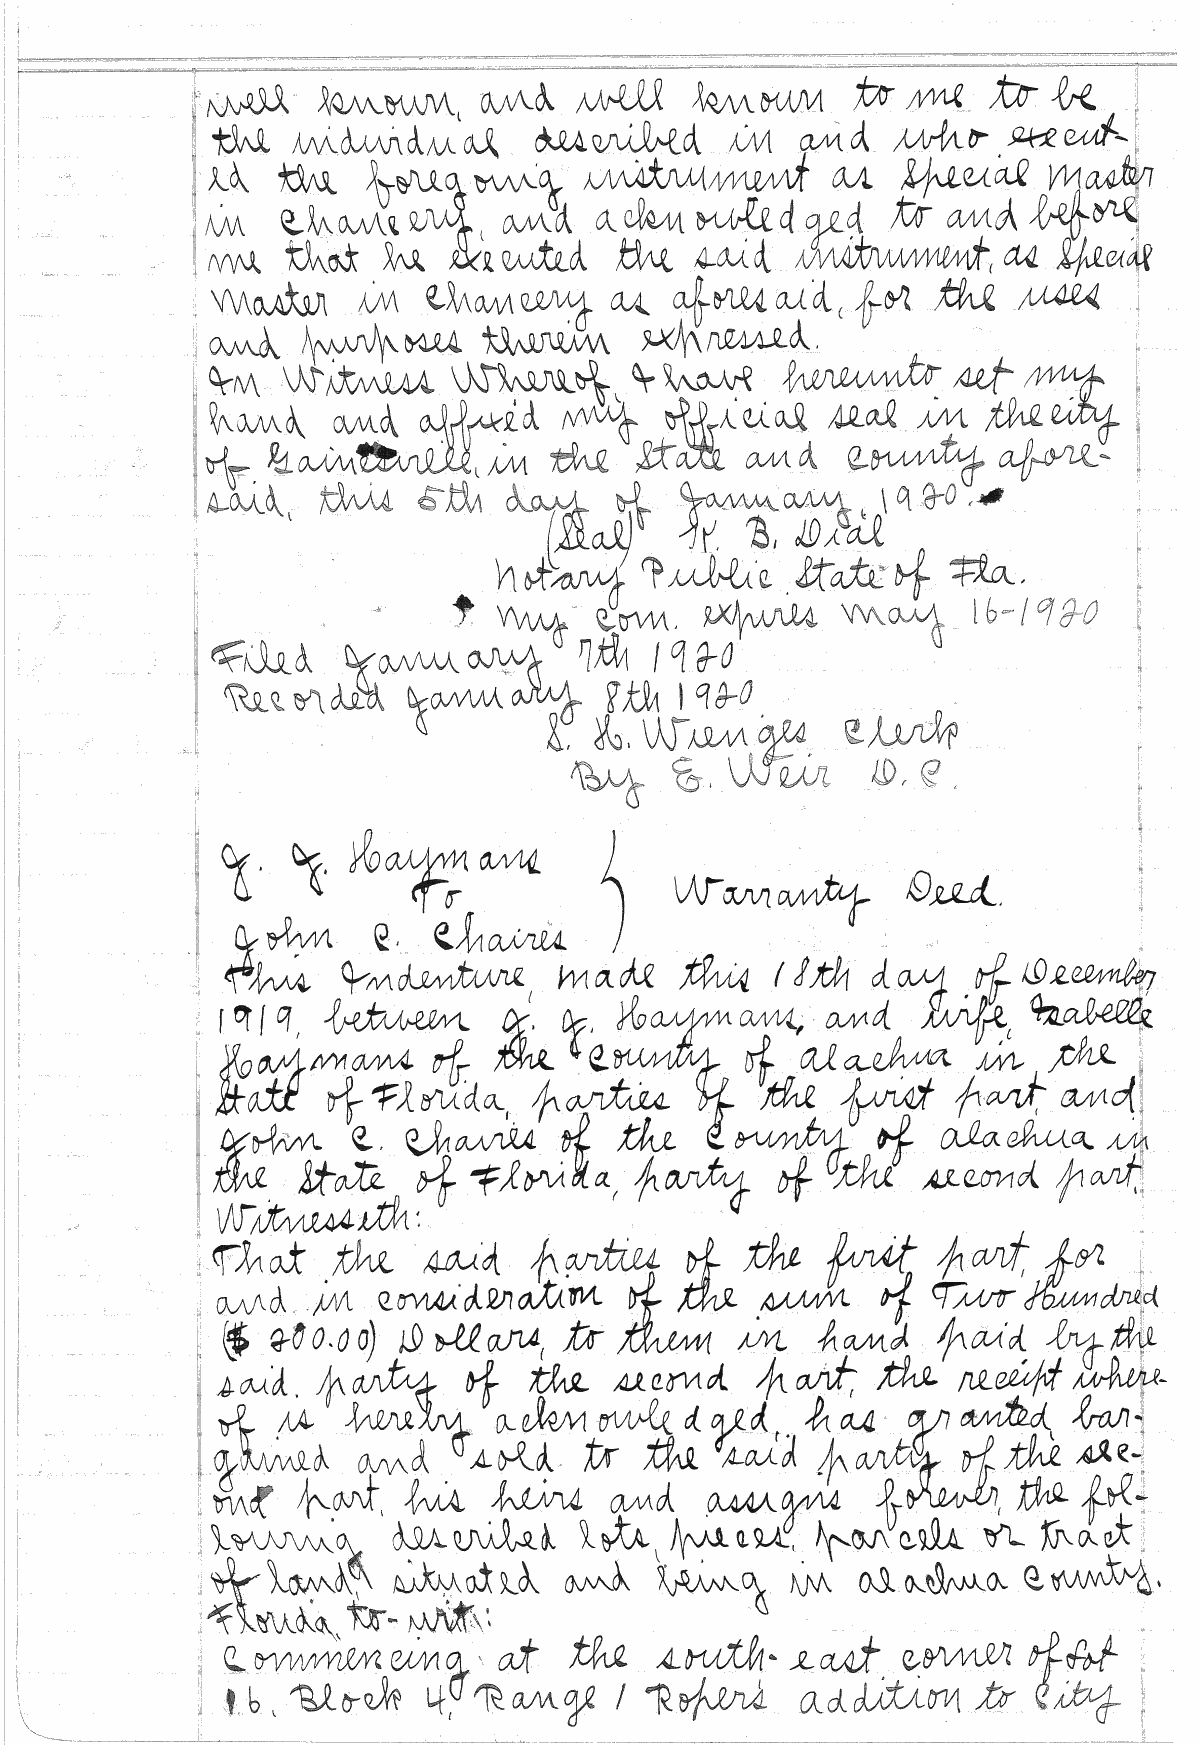 well known, and well known to me to be
the individual described in and who execut-
ed the foregoing instrument as Special Master
in Chancery, and acknowledged to and before
me that he executed the said instrument, as Special
Master in Chancery as aforesaid, for the uses
and purposes therein expressed.
In Witness Whereof, I have hereunto set my
hand and affixed my official seal in the city
of Gainesville, in the State and County afore-
said, this 5th day of January, 1920.
(Seal) K. B. Dial
Notary Public State of Fla.
My Com. expires May 16-1920
Filed January 7th 1920
Recorded January 8th 1920
S. H. Wienges Clerk
By E. Weir D.C.
J. J. Haymans
To
Warranty Deed.
John C. Chaires
This Indenture, made this 18th day of December
1919, between J. J. Haymans, and wife, Izabelle
Haymans of the County of Alachua in the
State of Florida, parties of the first part, and
John C. Chaires of the County of Alachua in
the State of Florida, party of the second part,
Witnesseth:
That the said parties of the first part, for
and in consideration of the sum of Two Hundred
($ 200.00) Dollars, to them in hand paid by the
said party of the second part, the receipt where-
of is hereby acknowledged, has granted, bar-
gained and sold to the said party of the sec-
ond part, his heirs and assigns forever, the fol-
lowing described lots, pieces, parcels or tract
of land, situated and being in Alachua County,
Florida, to-wit:
Commencing at the south-east corner of Lot
16, Block 4, Range 1 Roper's addition to City